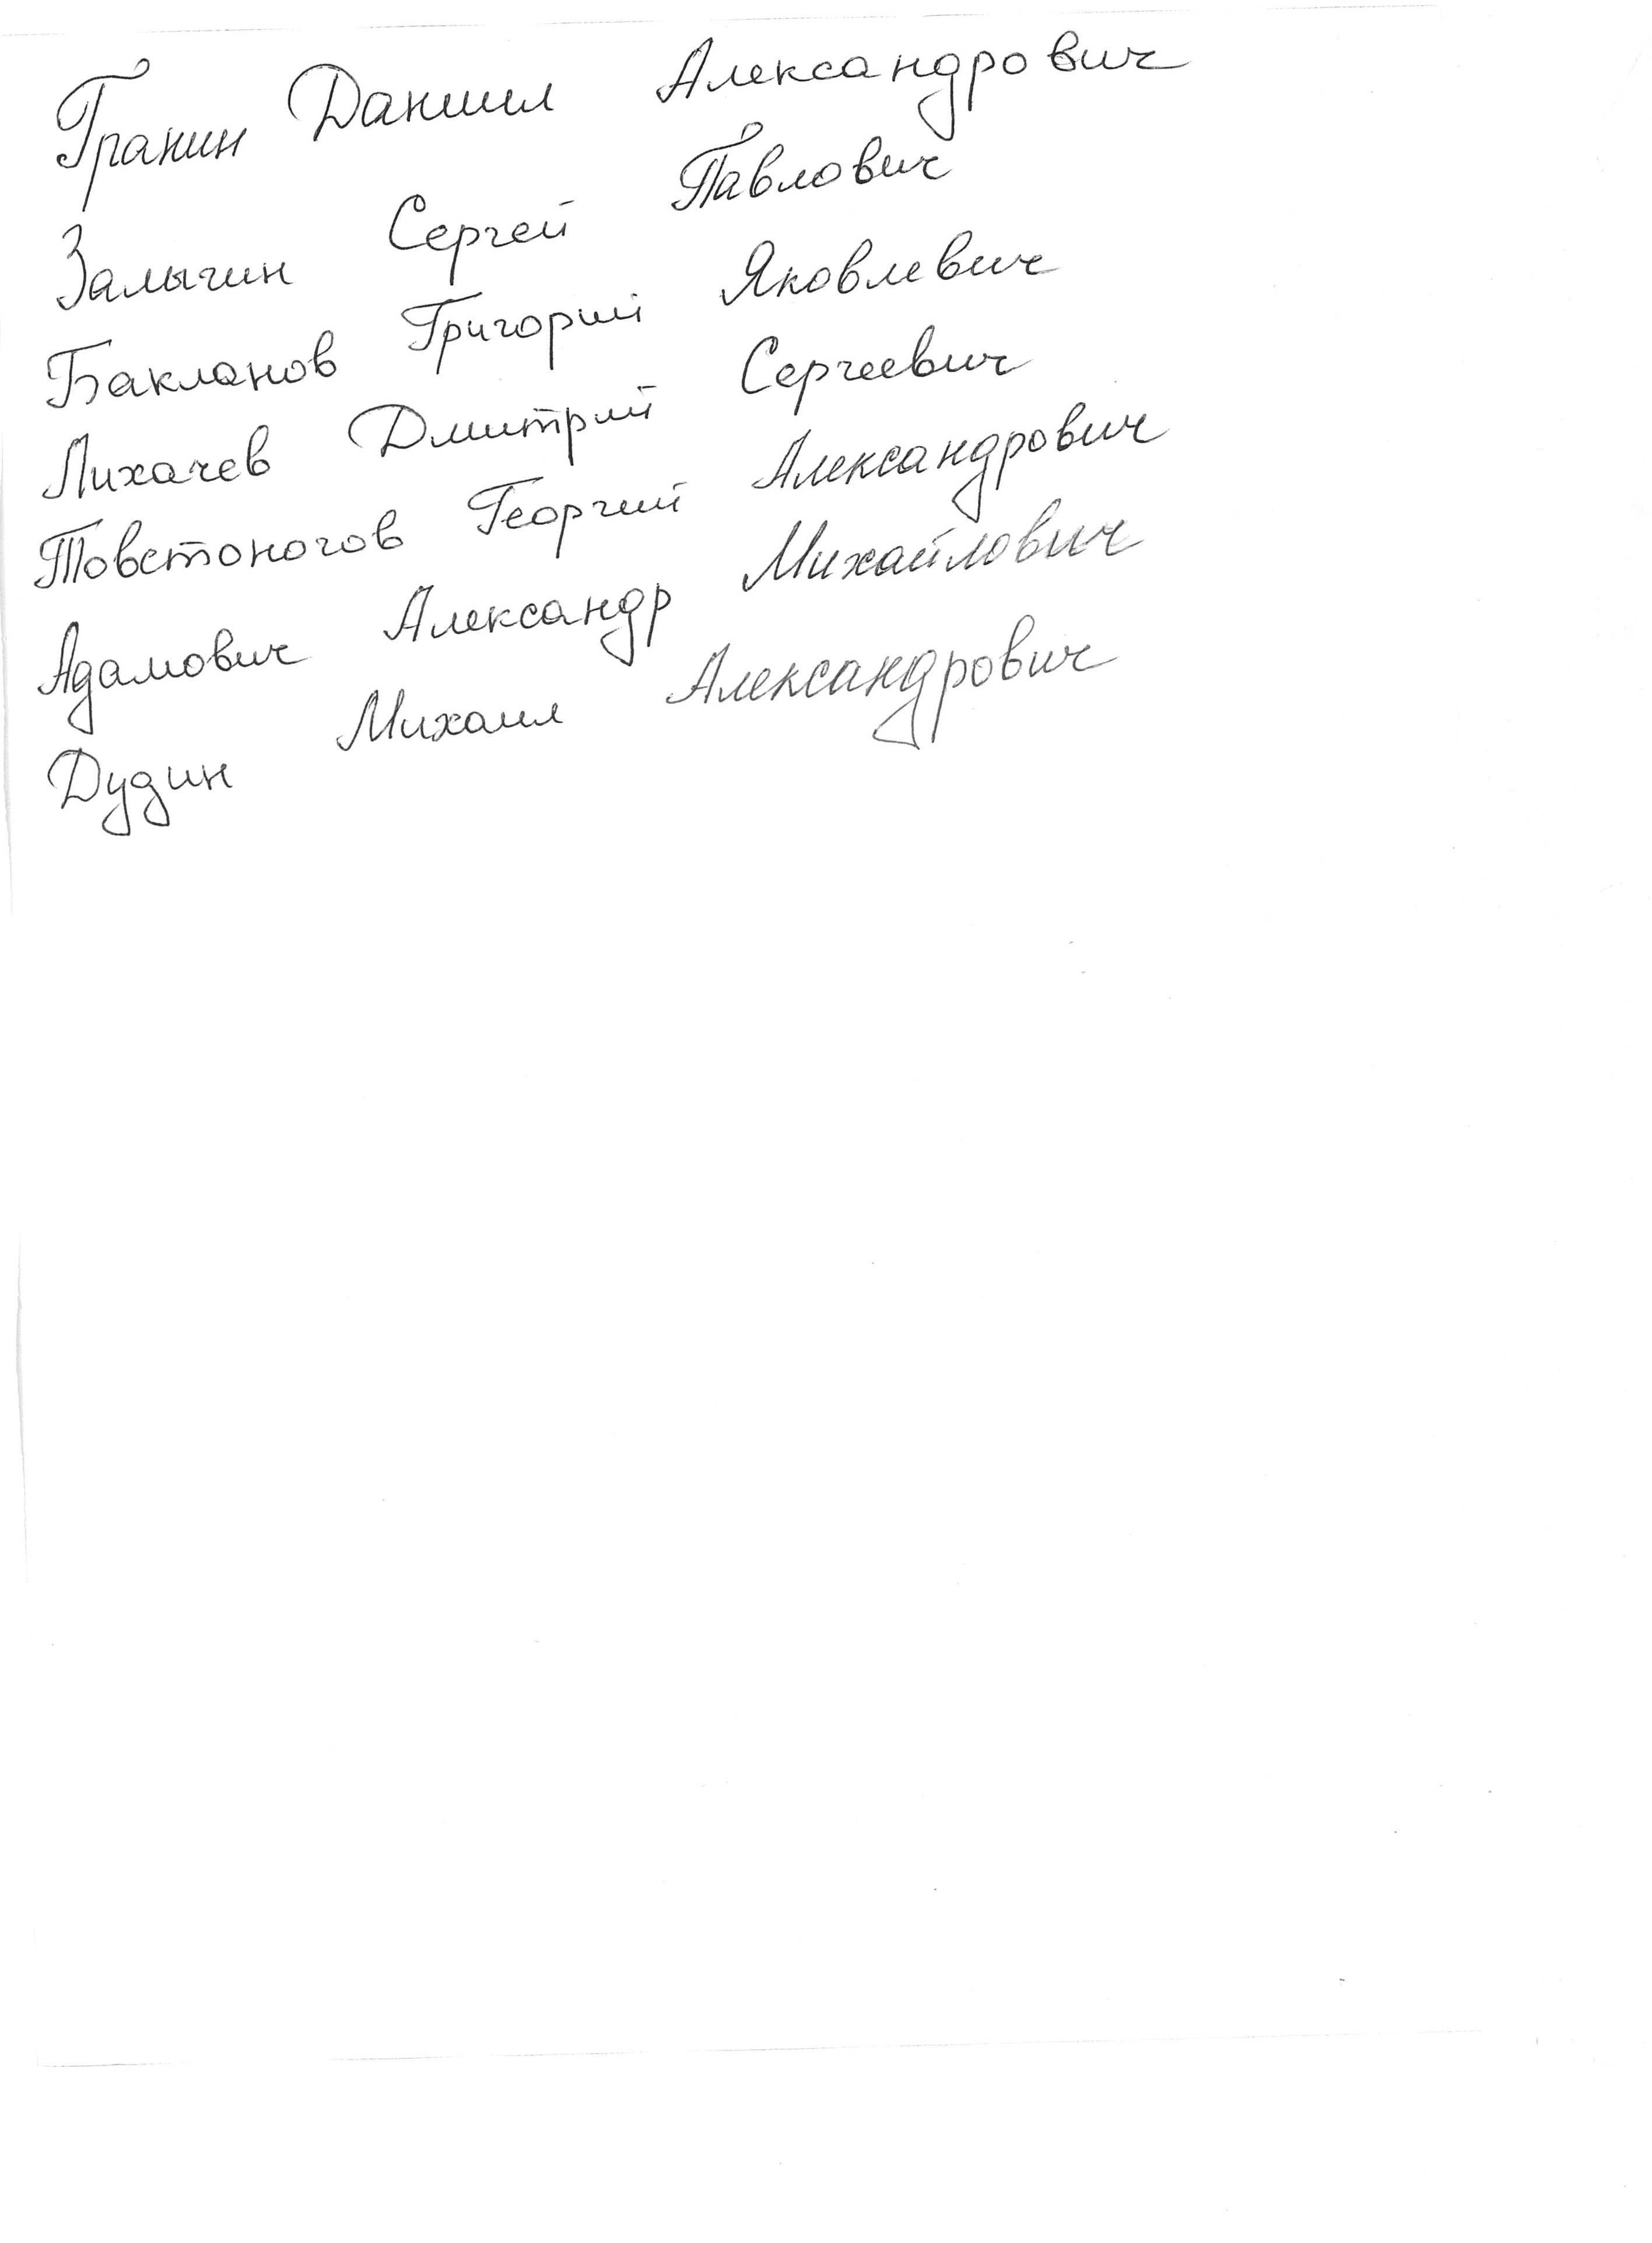 Гранин Даниил Александрович
Залыгин Сергей Павлович
Бакланов Григорий Яковлевич
Лихачев Дмитрий Сергеевич
Товстоногов Георгий Александрович
Адамович Александр Михайлович
Дудин Михаил Александрович